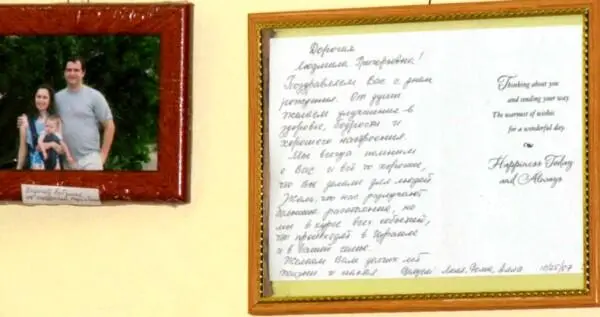 Дорогая
Людмила Григорьевна!
Поздравляем Вас с днем
рождения. От души
желаем улучшения в
здоровье, бодрости и
хорошего настроения.
Мы всегда помним
о Вас и всё то хорошее,
что Вы делали для людей
Жаль, что нас разлучают
большие расстояния, но
мы в курсе всех событий,
что происходят в Израиле
и в Вашей семье.
Желаем Вам долгих лет
жизни и 10/25/07
Thinking about you
and sending your way
The warmest of wishes
for a wonderful day.
Happiness Today
and Always